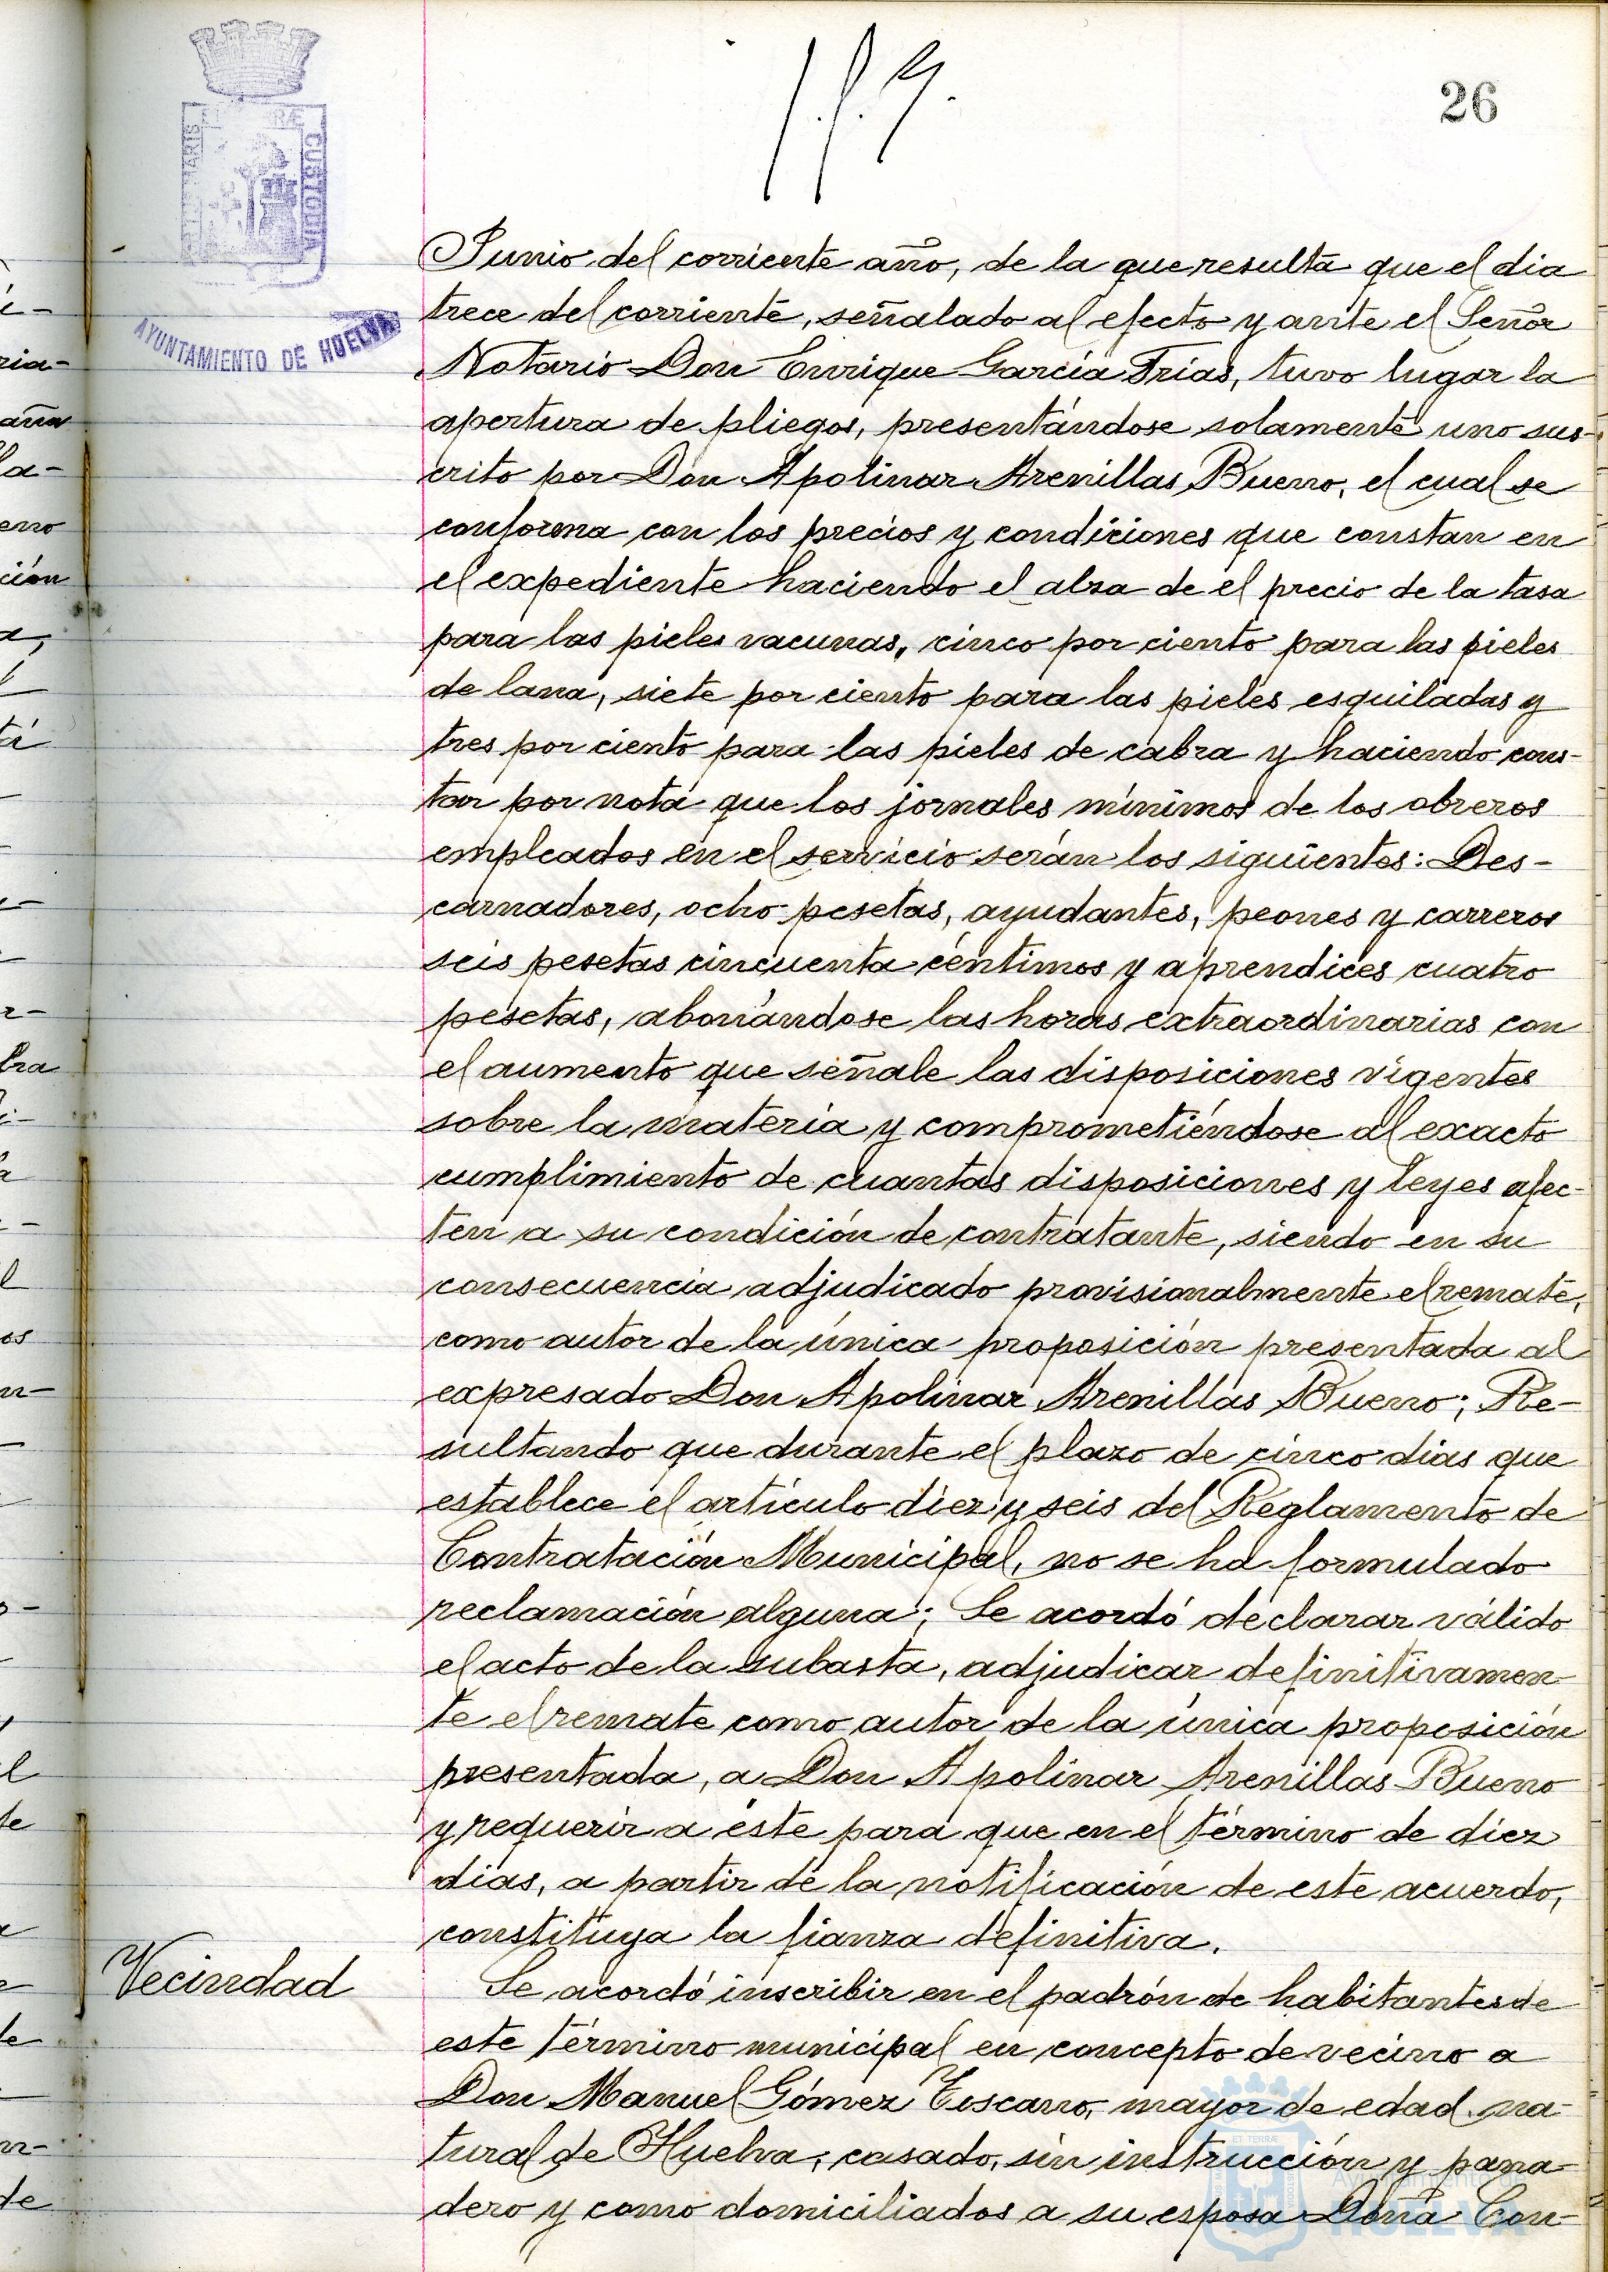 26
PORTUS MARIS ET TERRÆ CUSTODIA
AYUNTAMIENTO DE HUELVA
Junio del corriente año, de la que resulta que el dia
trece del corriente, señalado al efecto y ante el Señor
Notario Don Enrique García Frias, tuvo lugar la
apertura de pliegos, presentándose solamente uno sus-
crito por Don Apolinar Arenillas Bueno, el cual se
conforma con los precios y condiciones que constan en
el expediente haciendo el alza de el precio de la tasa
para las pieles vacunas, cinco por ciento para las pieles
de lana, siete por ciento para las pieles esquiladas y
tres por ciento para las pieles de cabra y haciendo cons-
tar por nota que los jornales mínimos de los obreros
empleados en el servicio serán los siguientes: Des-
carnadores, ocho pesetas, ayudantes, peones y carreros
seis pesetas cincuenta céntimos y aprendices cuatro
pesetas, abonándose las horas extraordinarias con
el aumento que señale las disposiciones vigentes
sobre la materia y comprometiéndose al exacto
cumplimiento de cuantas disposiciones y leyes afec-
ten a su condición de contratante, siendo en su
consecuencia adjudicado provisionalmente el remate,
como autor de la única proposición presentada al
expresado Don Apolinar Arenillas Bueno; Re-
sultando que durante el plazo de cinco dias que
establece el artículo diez y seis del Reglamento de
Contratación Municipal, no se ha formulado
reclamación alguna; Se acordó declarar válido
el acto de la subasta, adjudicar definitivamen-
te el remate como autor de la única proposición
presentada, a Don Apolinar Arenillas Bueno
y requerir a éste para que en el término de diez
dias, a partir de la notificación de este acuerdo,
constituya la fianza definitiva.
Vecindad
Se acordó inscribir en el padrón de habitantes de
este término municipal en concepto de vecino a
Don Manuel Gómez Toscano, mayor de edad, na-
tural de Huelva, casado, sin instrucción y pana-
dero y como domiciliados a su esposa Doña Con-
Ayuntamiento de
HUELVA